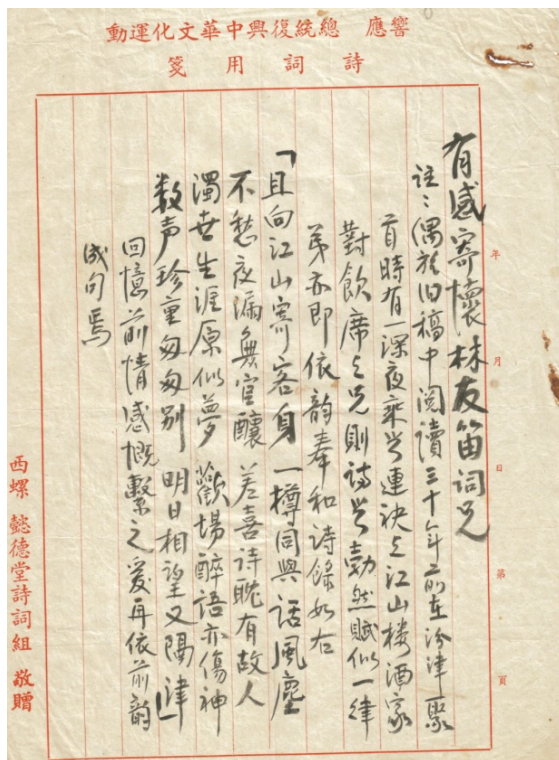 響應 總統復興中華文化運動
詩詞用箋
年月日第頁
有感寄懷林友笛詞兄
註:偶於旧稿中阅讀三十年前在汾津一聚
首時有一深夜乘兴連袂之江山楼酒家
對飲席之兄則詩兴勃然賦似一律
弟亦即依韵奉和詩錄如右
「且向江山寄客身 一樽同與話風塵
不愁夜漏無官釀 差喜詩耽有故人
濁世生涯原似夢 歡場醉語亦傷神
数声珍重匆匆別 明日相望又隔津」
回憶前情感慨繫之爰再依前韵
成句焉
西螺 懿德堂詩詞組 敬贈